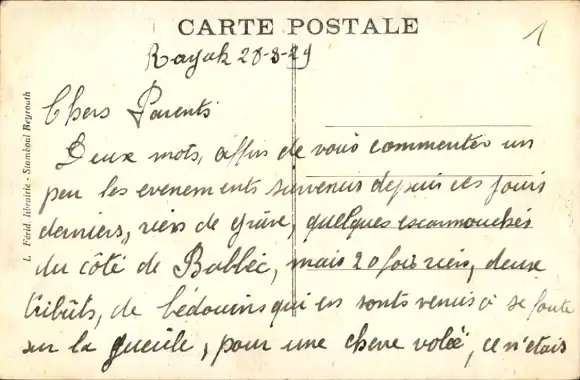 CARTE POSTALE
1
Rayak 28-8-29
Chers Parents
Deux mots, affin de vous commenter un
peu les evenements survenus depuis ces jours
derniers, rien de grâve, quelques escarmouches
du côté de Balbec, mais 20 fois rien, deux
tribûts, de bédouins qui en sonts venus à se foute
sur la gueule, pour une chevre volée, ce n'étais
L. Férid, librairie - Stamboul Beyrouth